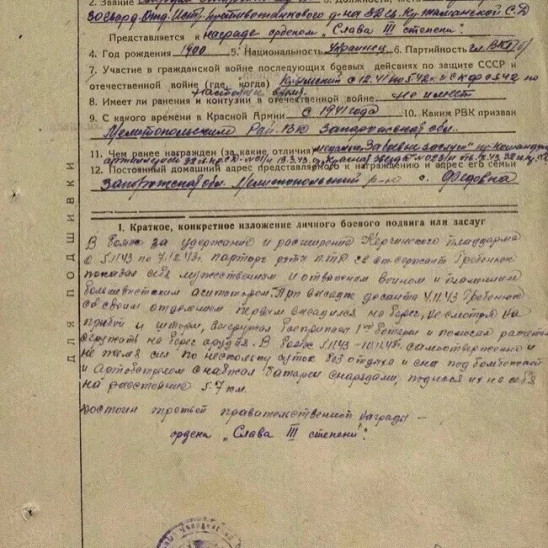 2. Звание
30 Отдельного Истр. Противотанкового д-на 32 сд
Представляется к награде орденом "Слава III степени".
4. Год рождения 1900 5. Национальность Украинец 6. Партийность чл. ВКП(б)
7. Участие в гражданской войне последующих боевых действиях по защите СССР и
отечественной войне (где, когда) Крымский с 12.41 по 5.42 и с по
настоящее время.
8. Имеет ли ранения и контузии в отечественной войне не имеет
9. С какого времени в Красной Армии с 1941 года 10. Каким РВК призван
Мелитопольским Рай. ВК Запорожской обл.
11. Чем ранее награжден (за какие отличия) медалью "За боевые заслуги"
12. Постоянный домашний адрес представляемого к награждению и адрес его семьи
Запорожская обл. Мелитопольский р-н с. Федовка
ДЛЯ ПОДШИВКИ
I. Краткое, конкретное изложение личного боевого подвига или заслуг
В боях за удержание и расширение Керченского плацдарма
с 5.11.43 по 7.12.43 парторг роты ПТР ст. сержант Гребенюк
показал себя мужественным и отважным воином и пламенным
большевистским агитатором. При высадке десанта 4.11.43 Гребенюк
со своим отделением первым высадился на берег, несмотря на
прибой и шторм, боеприпас 1ой батареи и помогал расчетам
на берег орудия. В боях 5.11.43-10.11.43 самоотверженно и
не жалея сил по нескольку суток без отдыха и сна под бомбежкой
и артобстрелом снабжал батареи снарядами, поднося их на себе
на расстояние 5-7 км.
Достоин третьей правительственной награды -
ордена "Слава III степени".